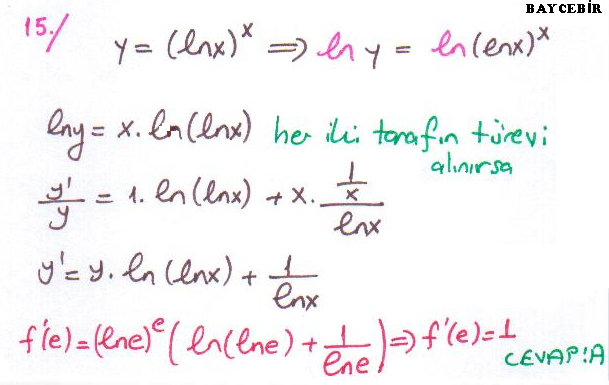 BAYCEBİR
15./ y = (lnx)^x ⟹ ln y = ln(lnx)^x
lny = x.ln(lnx) her iki tarafın türevi
alınırsa
y'/y = 1.ln(lnx) + x.(1/x)/lnx
y' = y.ln(lnx) + 1/lnx
f'(e) = (lne)^e (ln(lne) + 1/lne) ⟹ f'(e) = 1
CEVAP:A